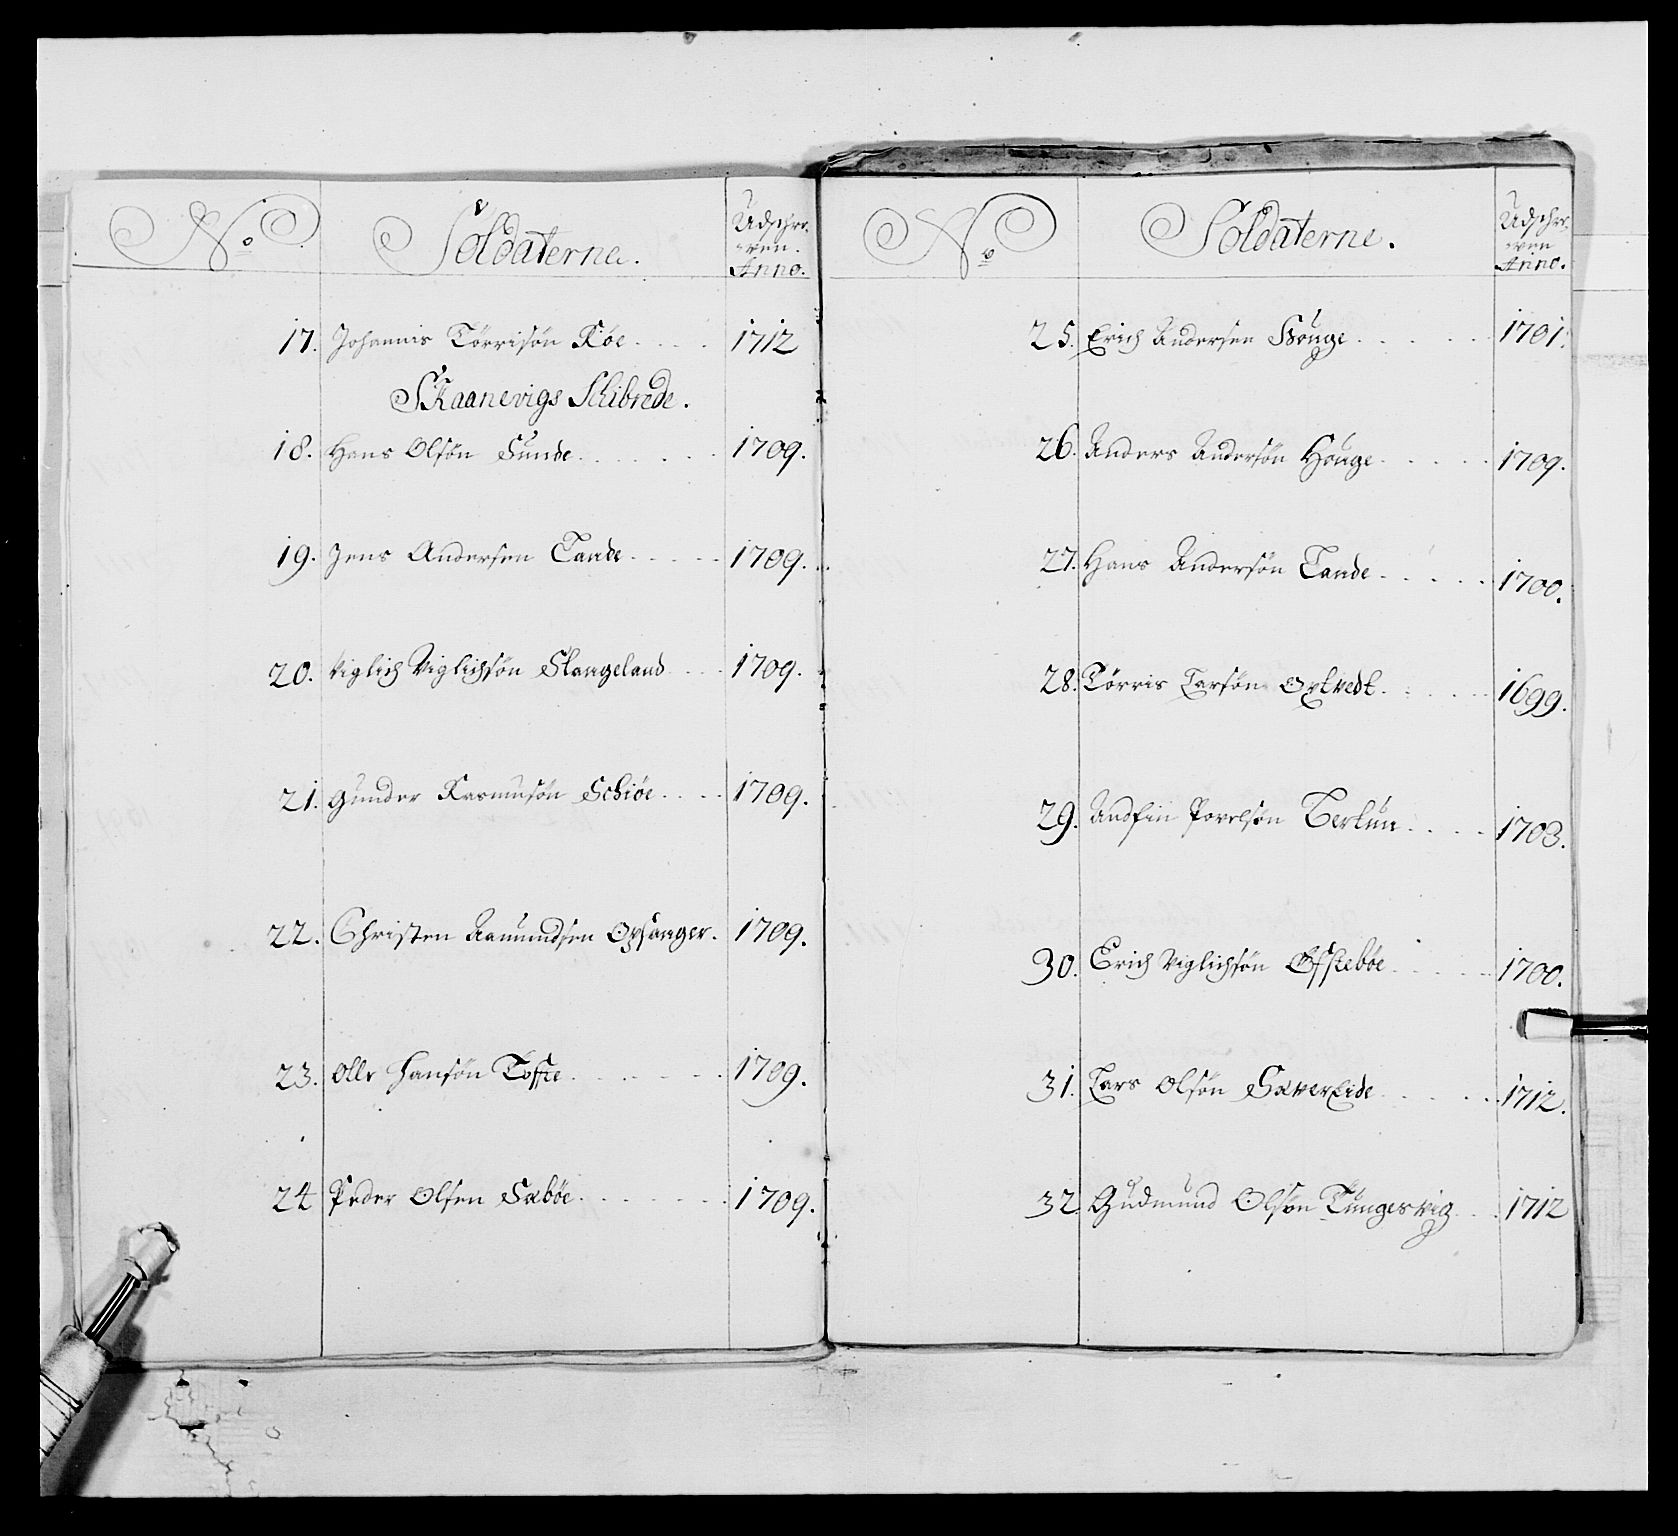 No. Soldaterne. Udschre-
ven.
Anno.
17. Johannis Törrisön Röe 1712
Skaanevigs Schibrede.
18. Hans Olsön Sunde 1709.
19. Jens Andersen Tande 1709.
20. Viglich Viglichsön Stangeland 1709.
21. Gunder Rasmusön Schiöe 1709.
22. Christen Aamundsen Opsanger. 1709.
23. Olle Hansön Tofte 1709.
24 Peder Olsen Sæböe 1709.
No. Soldaterne. Udschre-
ven
Anno.
25. Erich Andersen Houge 1701.
26. Anders Andersön Houge 1709.
27. Hans Andersön Tande 1700.
28. Törris Larsön Oxtvedt 1699.
29. Andfin Povelsön 1703.
30. Erich Viglichsön Ofsteböe 1700.
31. Lars Olsön Sævereide 1712.
32. Gudmund Olsön Tungesvig 1712